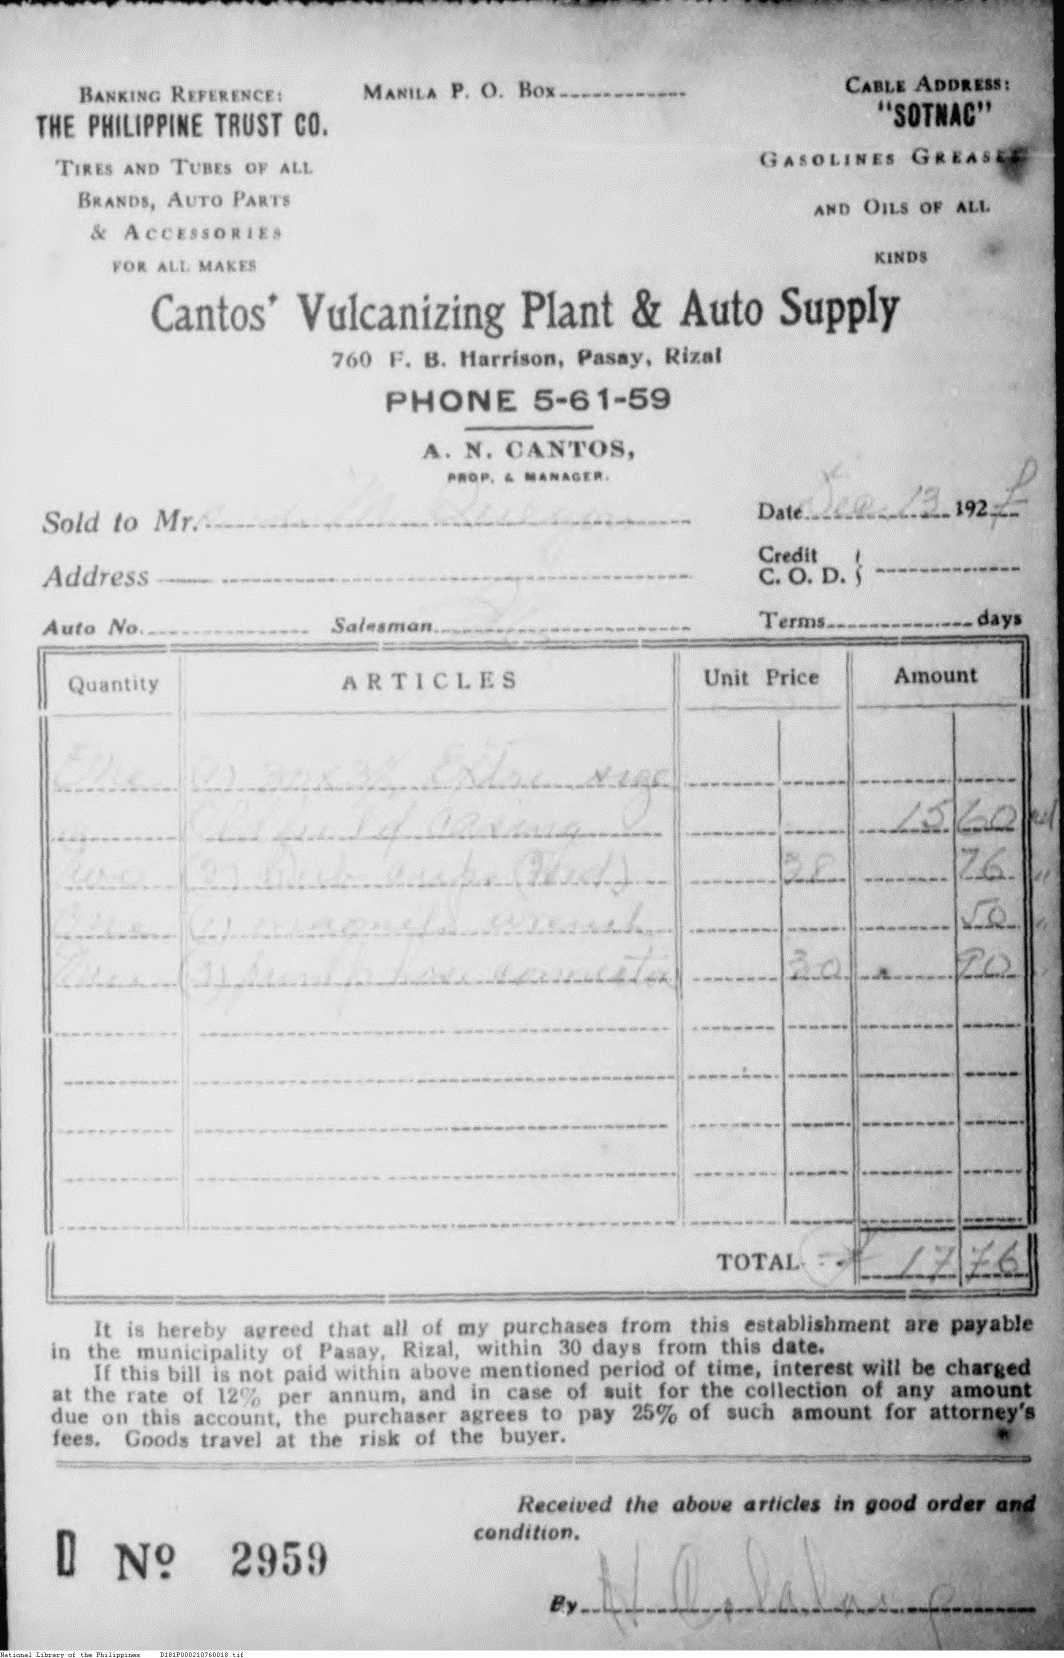 BANKING REFERENCE:
THE PHILIPPINE TRUST CO.
TIRES AND TUBES OF ALL
BRANDS, AUTO PARTS
& ACCESSORIES
FOR ALL MAKES
MANILA P. O. BOX
CABLE ADDRESS:
"SOTNAC"
GASOLINES GREASES
AND OILS OF ALL
KINDS
Cantos' Vulcanizing Plant & Auto Supply
760 F. B. Harrison, Pasay, Rizal
PHONE 5-61-59
A. N. CANTOS,
PROP. & MANAGER.
Sold to Mr. M.
Date Dec. 13 192
Address
Credit
C. O. D.
Auto No. Salesman
Terms days
Quantity ARTICLES Unit Price Amount
One (1) 30x3½ Extra size
casing 15 60
Two (2) caps (Red) 38 76
One (1) magneto wrench 50
(3) pump hose 30 90
TOTAL 17 76
It is hereby agreed that all of my purchases from this establishment are payable
in the municipality of Pasay, Rizal, within 30 days from this date.
If this bill is not paid within above mentioned period of time, interest will be charged
at the rate of 12% per annum, and in case of suit for the collection of any amount
due on this account, the purchaser agrees to pay 25% of such amount for attorney's
fees. Goods travel at the risk of the buyer.
Received the above articles in good order and
condition.
D No 2959
By
National Library of the Philippines D181P000210760018.tif